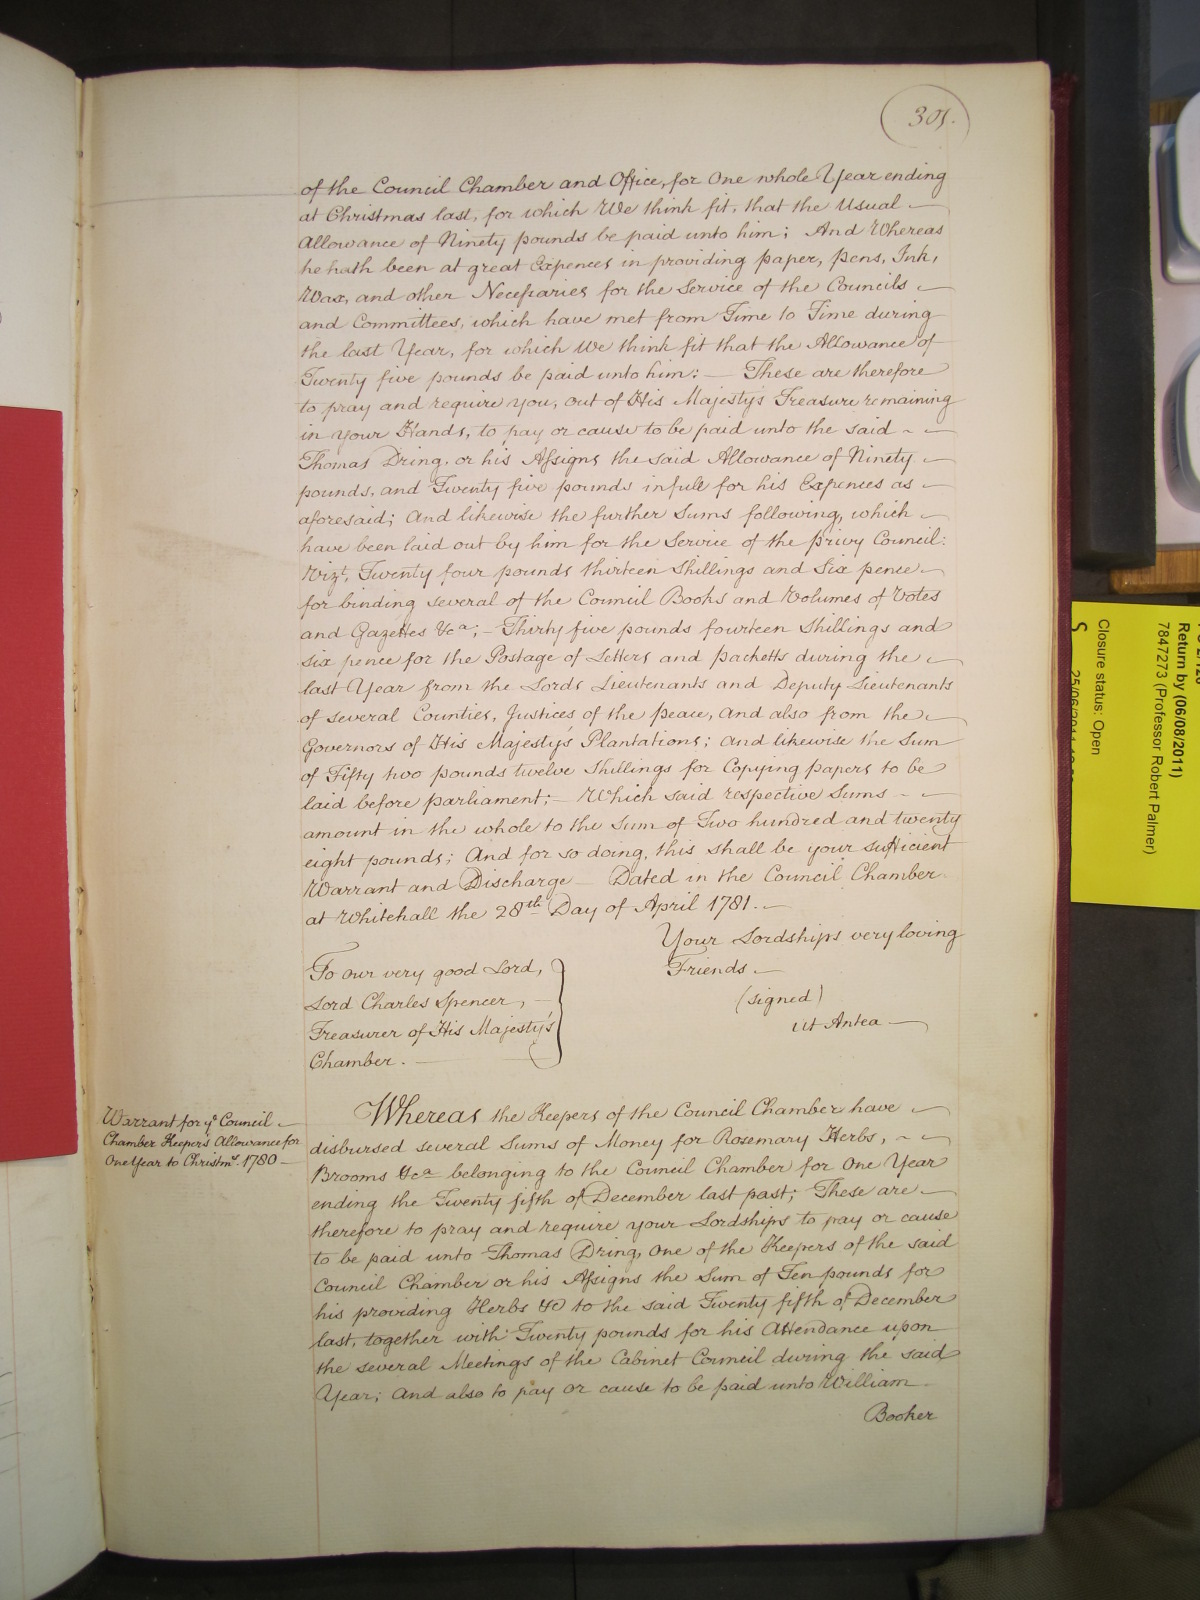 301.
of the Council Chamber and Office, for One whole Year ending
at Christmas last, for which We think fit, that the Usual
Allowance of Ninety pounds be paid unto him; And Whereas
he hath been at great Expences in providing paper, pens, Ink,
Wax, and other Necessaries for the Service of the Councils
and Committees, which have met from Time to Time during
the last Year, for which We think fit that the Allowance of
Twenty five pounds be paid unto him: — These are therefore
to pray and require you, out of His Majesty's Treasure remaining
in your Hands, to pay or cause to be paid unto the said
Thomas Dring, or his Assigns the said Allowance of Ninety
pounds, and Twenty five pounds in full for his Expences as
aforesaid; And likewise the further Sums following, which
have been laid out by him for the Service of the privy Council:
Vizt. Twenty four pounds thirteen Shillings and Six pence
for binding several of the Council Books and Volumes of Votes
and Gazettes &ca; — Thirty five pounds fourteen Shillings and
six pence for the Postage of Letters and packetts during the
last Year from the Lords Lieutenants and Deputy Lieutenants
of several Counties, Justices of the peace, and also from the
Governors of His Majesty's Plantations; and likewise the Sum
of Fifty two pounds twelve Shillings for Copying papers to be
laid before parliament; — Which said respective Sums
amount in the whole to the Sum of Two hundred and twenty
eight pounds; And for so doing, this shall be your sufficient
Warrant and Discharge — Dated in the Council Chamber
at Whitehall the 28th Day of April 1781. —
Your Lordships very loving
Friends —
(signed)
Ut Antea —
To our very good Lord,
Lord Charles Spencer, —
Treasurer of His Majesty's
Chamber. —
Warrant for ye Council
Chamber Keepers Allowance for
One Year to Christms. 1780 —
Whereas the Keepers of the Council Chamber have
disbursed several Sums of Money for Rosemary Herbs,
Brooms &ca belonging to the Council Chamber for One Year
ending the Twenty fifth of December last past; These are
therefore to pray and require your Lordships to pay or cause
to be paid unto Thomas Dring, one of the Keepers of the said
Council Chamber or his Assigns the Sum of Ten pounds for
his providing Herbs &c to the said Twenty fifth of December
last, together with Twenty pounds for his Attendance upon
the several Meetings of the Cabinet Council during the said
Year; And also to pay or cause to be paid unto William
Booker
Return by (06/08/2011)
7847273 (Professor Robert Palmer)
Closure status: Open